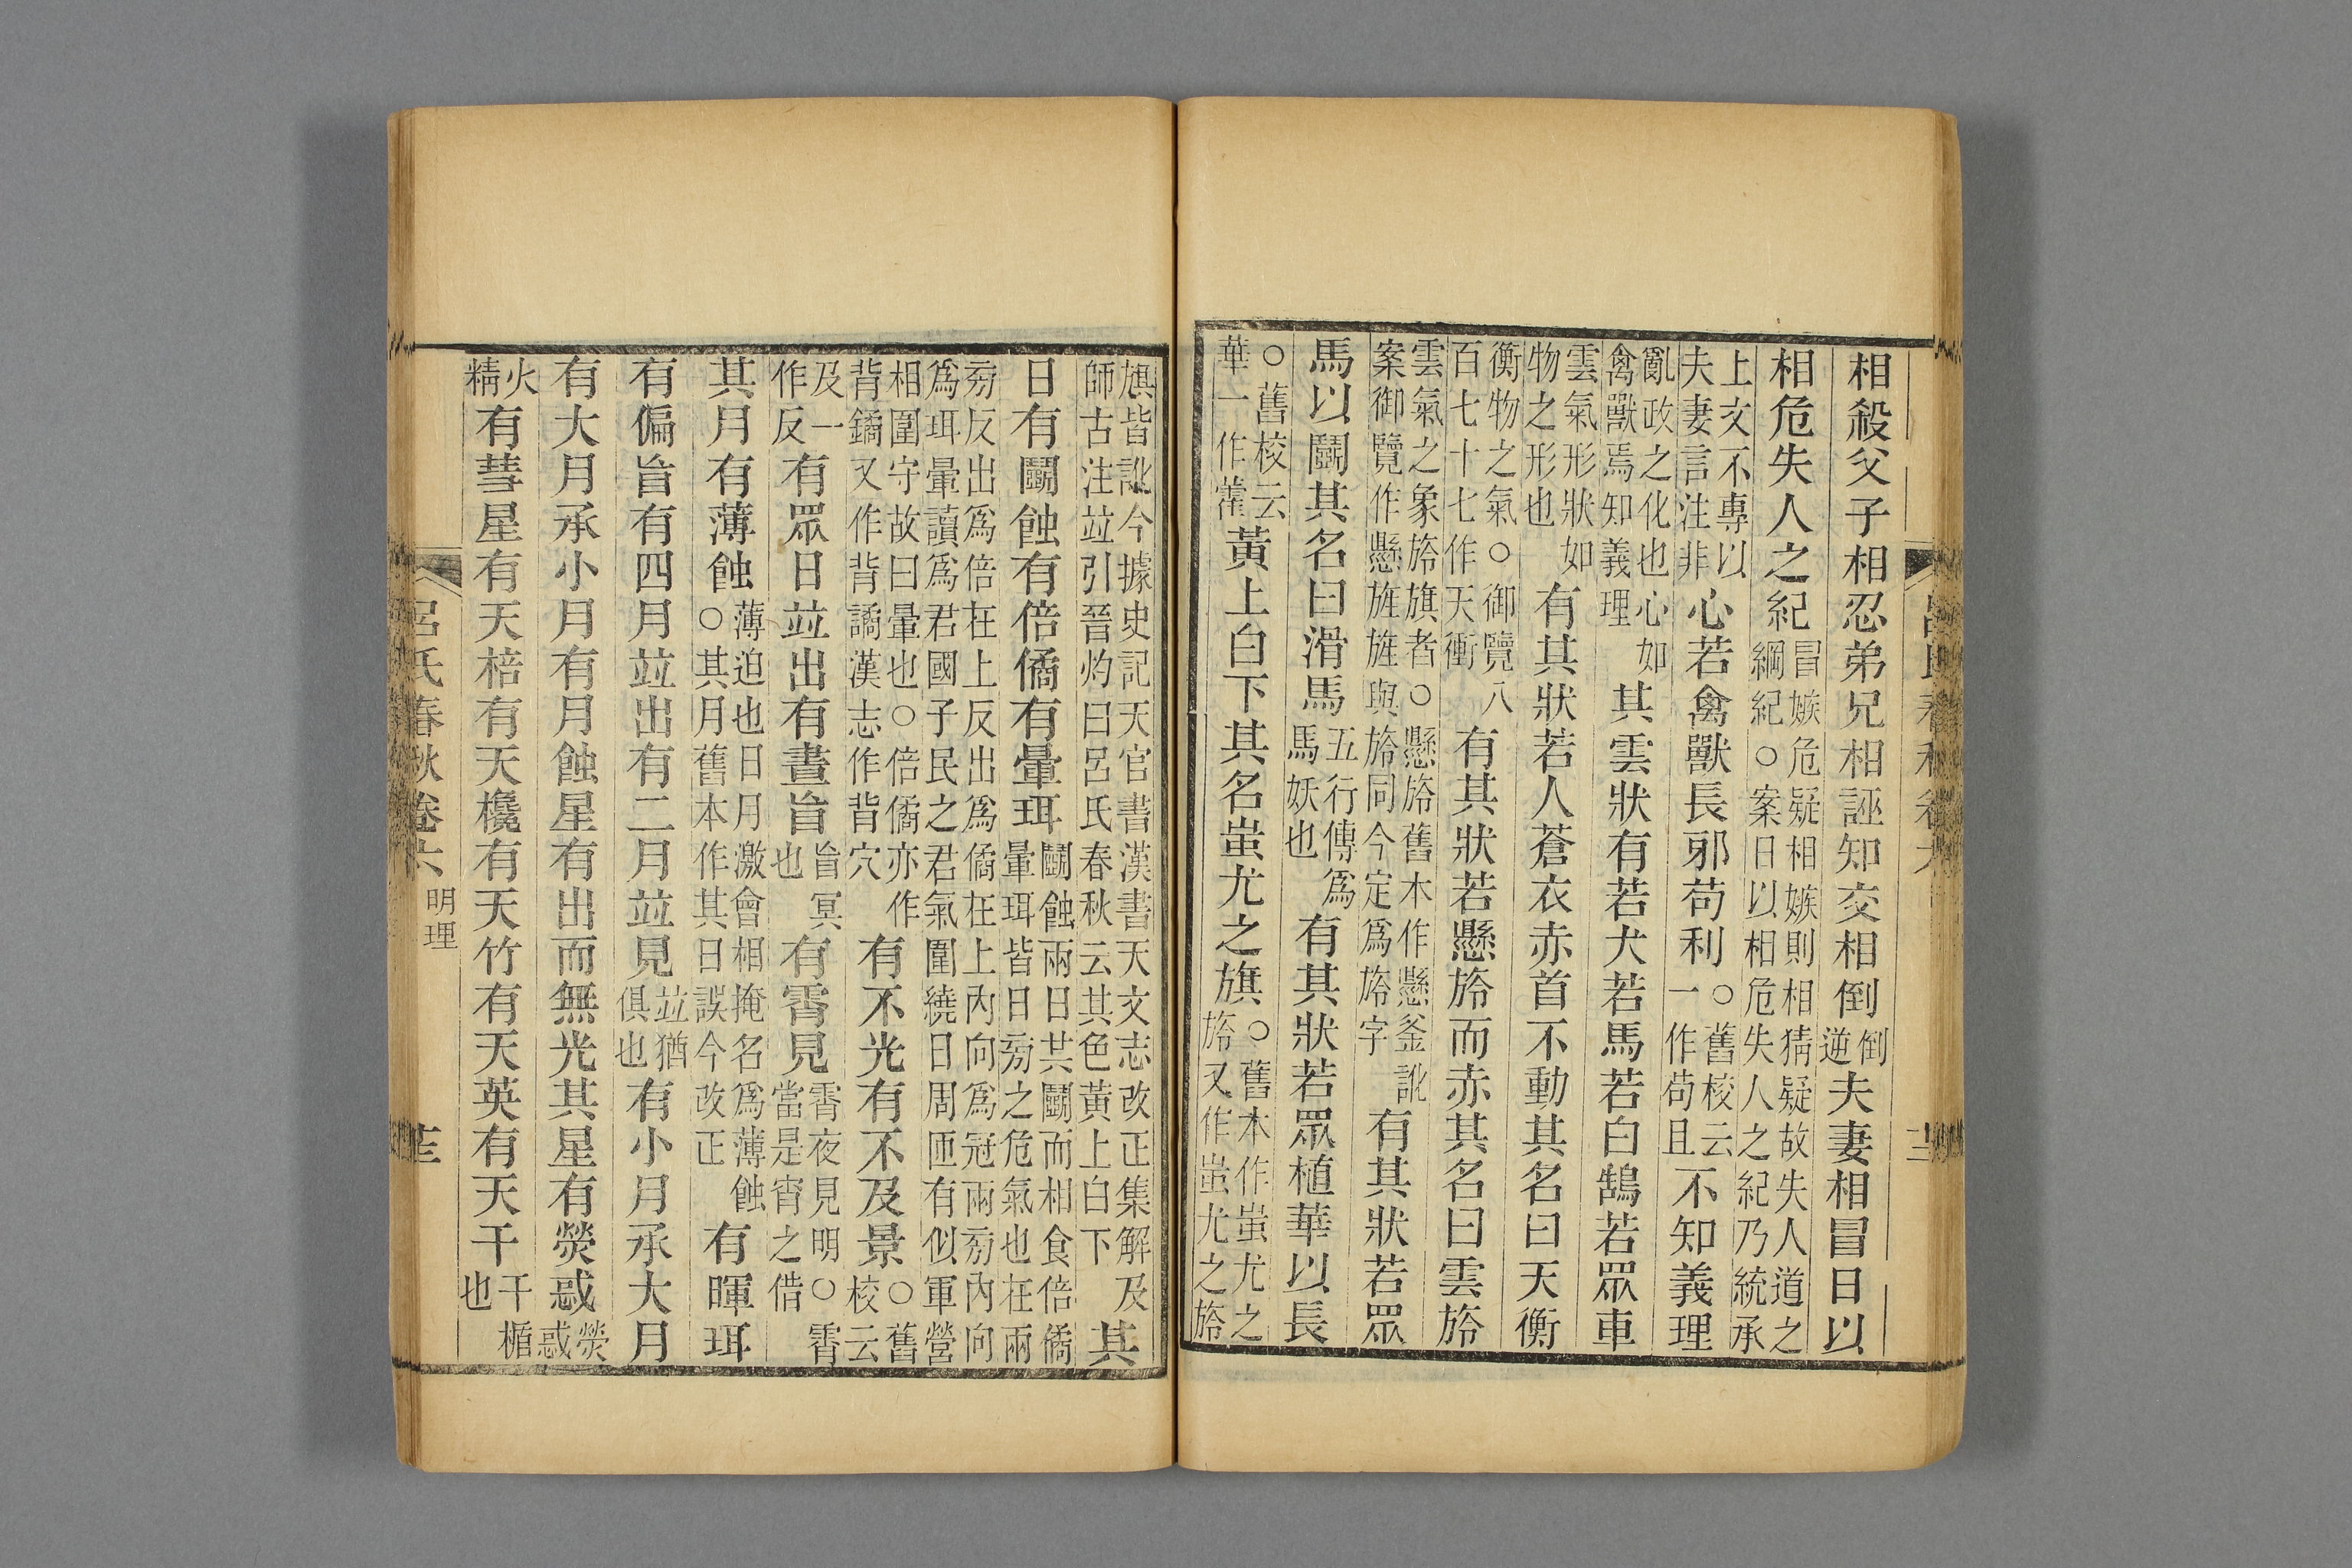 呂氏春秋卷六
相殺父子相忍弟兄相誣知交相倒倒逆夫妻相冒日以
相危失人之紀冒嫉危疑相嫉則相猜疑故失人道之綱紀○案日以相危失人之紀乃統承
上文不專以夫妻言注非心若禽獸長邪苟利○舊校云一作苟且不知義理
亂政之化也心如禽獸焉知義理其雲狀有若犬若馬若白鵠若眾車
雲氣形狀如物之形也有其狀若人蒼衣赤首不動其名曰天衡
衡物之氣○御覽八百七十七作天衝有其狀若懸旍而赤其名曰雲旍
雲氣之象旍旗者○懸旍舊本作懸釜訛案御覽作懸旌旌與旍同今定爲旍字有其狀若眾
馬以鬭其名曰滑馬五行傳爲馬妖也有其狀若眾植華以長
○舊校云華一作黃上白下其名蚩尤之旗○舊本作蚩尤之旍又作蚩尤之旍
旗皆訛今據史記天官書漢書天文志改正集解及師古注竝引晉灼曰呂氏春秋云其色黃上白下其
日有鬭蝕有倍僪有暈珥鬭蝕兩日共鬭而相食倍僪暈珥皆日旁之危氣也在兩
旁反出爲倍在上反出爲僪在上內向爲冠兩旁內向爲珥暈讀爲君國子民之君氣圍繞日周匝有似軍營
相圍守故曰暈也○倍僪亦作背鐍又作背譎漢志作背穴有不光有不及景○舊校云
及一作反有眾日竝出有晝盲盲冥也有霄見霄夜見明○霄當是宵之借
其月有薄蝕薄迫也日月激會相掩名爲薄蝕○其月舊本作其日誤今改正有暉珥
有偏盲有四月竝出有二月竝見竝猶俱也有小月承大月
有大月承小月有月蝕星有出而無光其星有熒惑熒惑
火精有彗星有天棓有天欃有天竹有天英有天干干楯也
呂氏春秋卷六 明理 十三